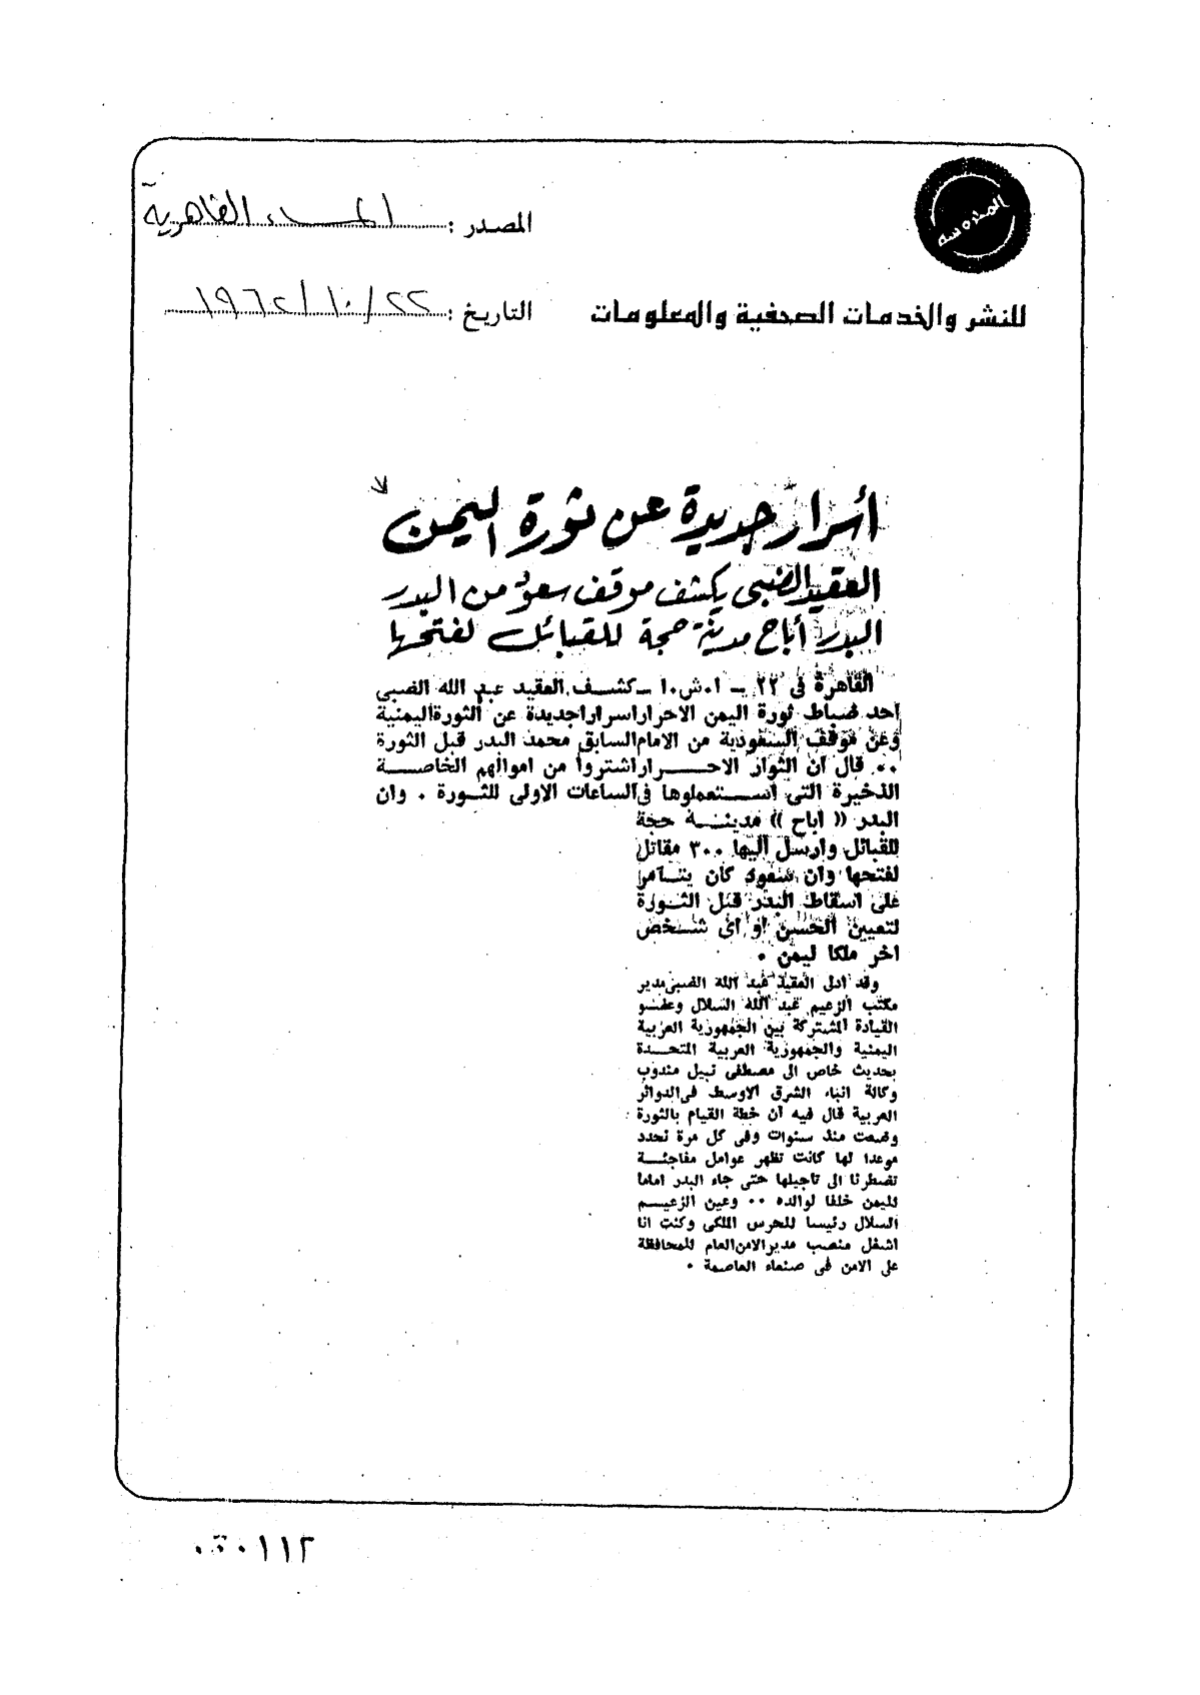 المحروسة
المصدر : المساء القاهرية
للنشر والخدمات الصحفية والمعلومات
التاريخ : ٢٢/١٠/١٩٦٢
أسرار جديدة عن ثورة اليمن
العقيد الضبى يكشف موقف سعود من البدر
البدر أباح مدينة حجة للقبائل لفتحها
القاهرة فى ٢٢ - ا.ش.ا - كشف العقيد عبد الله الضبى
احد ضباط ثورة اليمن الاحرار اسرارا جديدة عن الثورة اليمنية
وعن موقف السعودية من الامام السابق محمد البدر قبل الثورة
.. قال ان الثوار الاحرار اشتروا من اموالهم الخاصة
الذخيرة التى استعملوها فى الساعات الاولى للثورة . وان
البدر (( اباح )) مدينة حجة
للقبائل وارسل اليها ٣٠٠ مقاتل
لفتحها وان سعود كان يتامر
على اسقاط البدر قبل الثورة
لتعيين الحسن او اى شخص
اخر ملكا ليمن .
وقد ادلى العقيد عبد الله الضبى مدير
مكتب الزعيم عبد الله السلال وعضو
القيادة المشتركة بين الجمهورية العربية
اليمنية والجمهورية العربية المتحدة
بحديث خاص الى مصطفى نبيل مندوب
وكالة انباء الشرق الاوسط فى الدوائر
العربية قال فيه ان خطة القيام بالثورة
وضعت منذ سنوات وفى كل مرة نحدد
موعدا لها كانت تظهر عوامل مفاجئة
تضطرنا الى تاجيلها حتى جاء البدر اماما
لليمن خلفا لوالده .. وعين الزعيم
السلال رئيسا للحرس الملكى وكنت انا
اشغل منصب مدير الامن العام للمحافظة
على الامن فى صنعاء العاصمة .